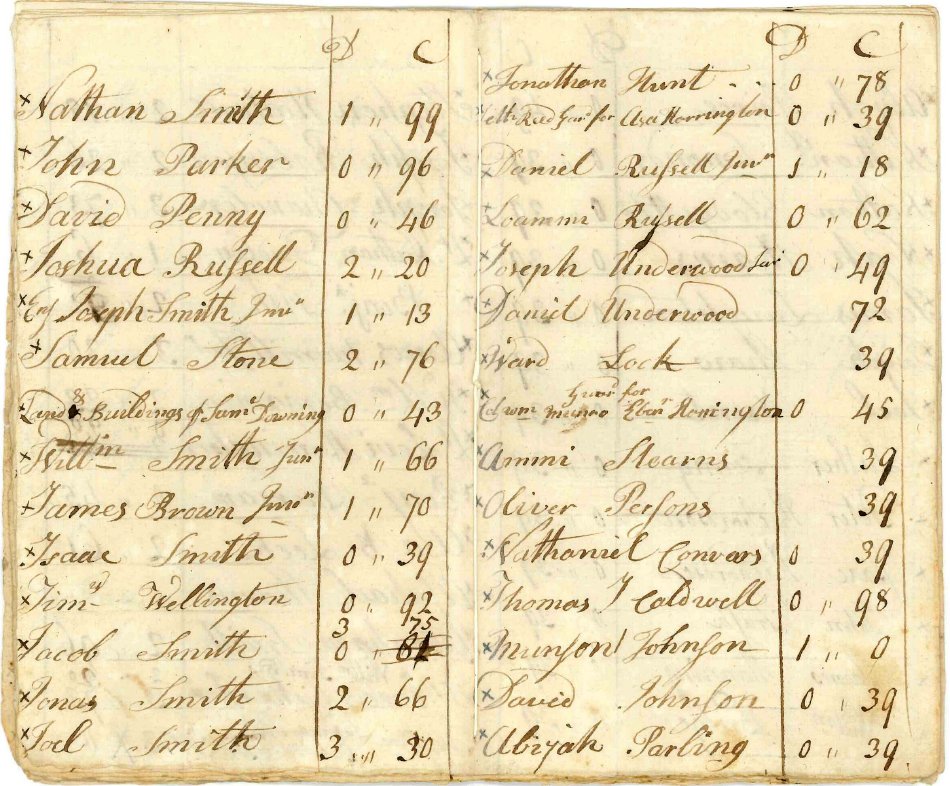 D C
× Nathan Smith 1 " 99
× John Parker 0 " 96
× David Penny 0 " 46
× Joshua Russell 2 " 20
× Joseph Smith Junr 1 " 13
× Samuel Stone 2 " 76
Land & Buildings of Saml Downing 0 " 43
× Willm Smith Junr 1 " 66
× James Brown Junr 1 " 70
× Isaac Smith 0 " 39
× Timy Wellington 0 " 92
3 75
× Jacob Smith 0 " 81
× Jonas Smith 2 " 66
× Joel Smith 3 " 30
D C
× Jonathan Hunt 0 " 78
Seth Reed Gar for Asa Harrington 0 " 39
× Daniel Russell Junr 1 " 18
× Loammi Russell 0 " 62
× Joseph Underwood 0 " 49
× Daniel Underwood 72
× Ward Lock 39
Guar for
Wm Munroe Eben Harrington 0 45
× Ammi Stearns 39
× Oliver Persons 39
× Nathaniel Convars 0 39
× Thomas J Caldwell 0 " 98
× Munson Johnson 1 " 0
× David Johnson 0 " 39
× Abijah Parling 0 " 39